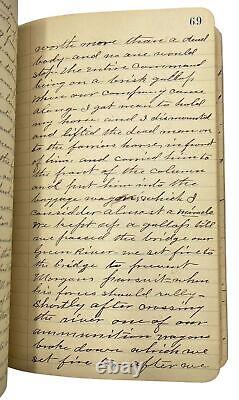 69
worth more than a dead
body and no one would
stop the entire command
being on a brisk gallop
when our company came
along I got man to hold
my horse and I dismounted
and lifted the dead man on
to the farrier horse in front
of him and carried him to
the front of the column
and put him into the
baggage wagon which I
considder almost a miracle
We kept up a gallop till
we passed the bridge over
Green River we set fire to
the bridge to prevent
Morgans pursuit when
his forces should
Shortly after crossing
the river one of our
ammunition wagons
broke down which we
set fire to after we
ebay